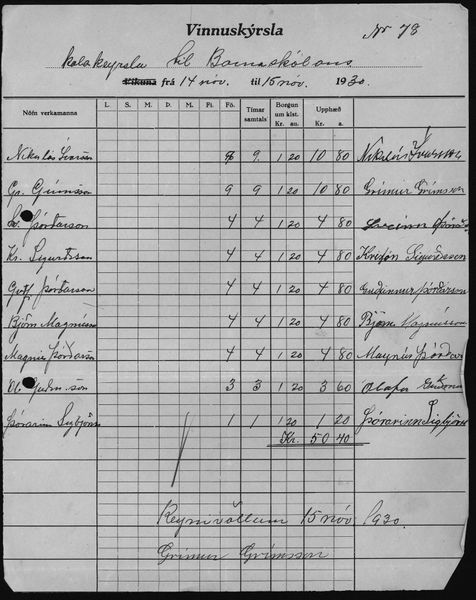 Vinnuskýrsla Nr 78
kolakeyrsla til Barnaskólans
vikuna frá 14 nóv. til 15 nóv. 1930.
Nöfn verkamanna L. S. M. Þ. M. Fi. Fö. Tímar samtals Borgun um klst. Kr. au. Upphæð Kr. a.
Nikulás 9 9. 1 20 10 80 Nikulás
Gr. Grímsson 9 9 1 20 10 80 Grímur Grímsson
Þórðarson 4 4 1 20 4 80
Kr. Sigurðsson 4 4 1 20 4 80 Kristján Sigurðsson
Þórðarson 4 4 1 20 4 80 Þórðarson
Björn Magnússon 4 4 1 20 4 80 Björn Magnússon
Magnús Þórðarson 4 4 1 20 4 80 Magnús Þórðar
Ól 3 3 1 20 3 60 Ólafur
Þórarinn Sigbjörns 1 1 1 20 1 20 Þórarinn Sigbjörns
Kr. 50 40
Reynivöllum 15 nóv 1930.
Grímur Grímsson